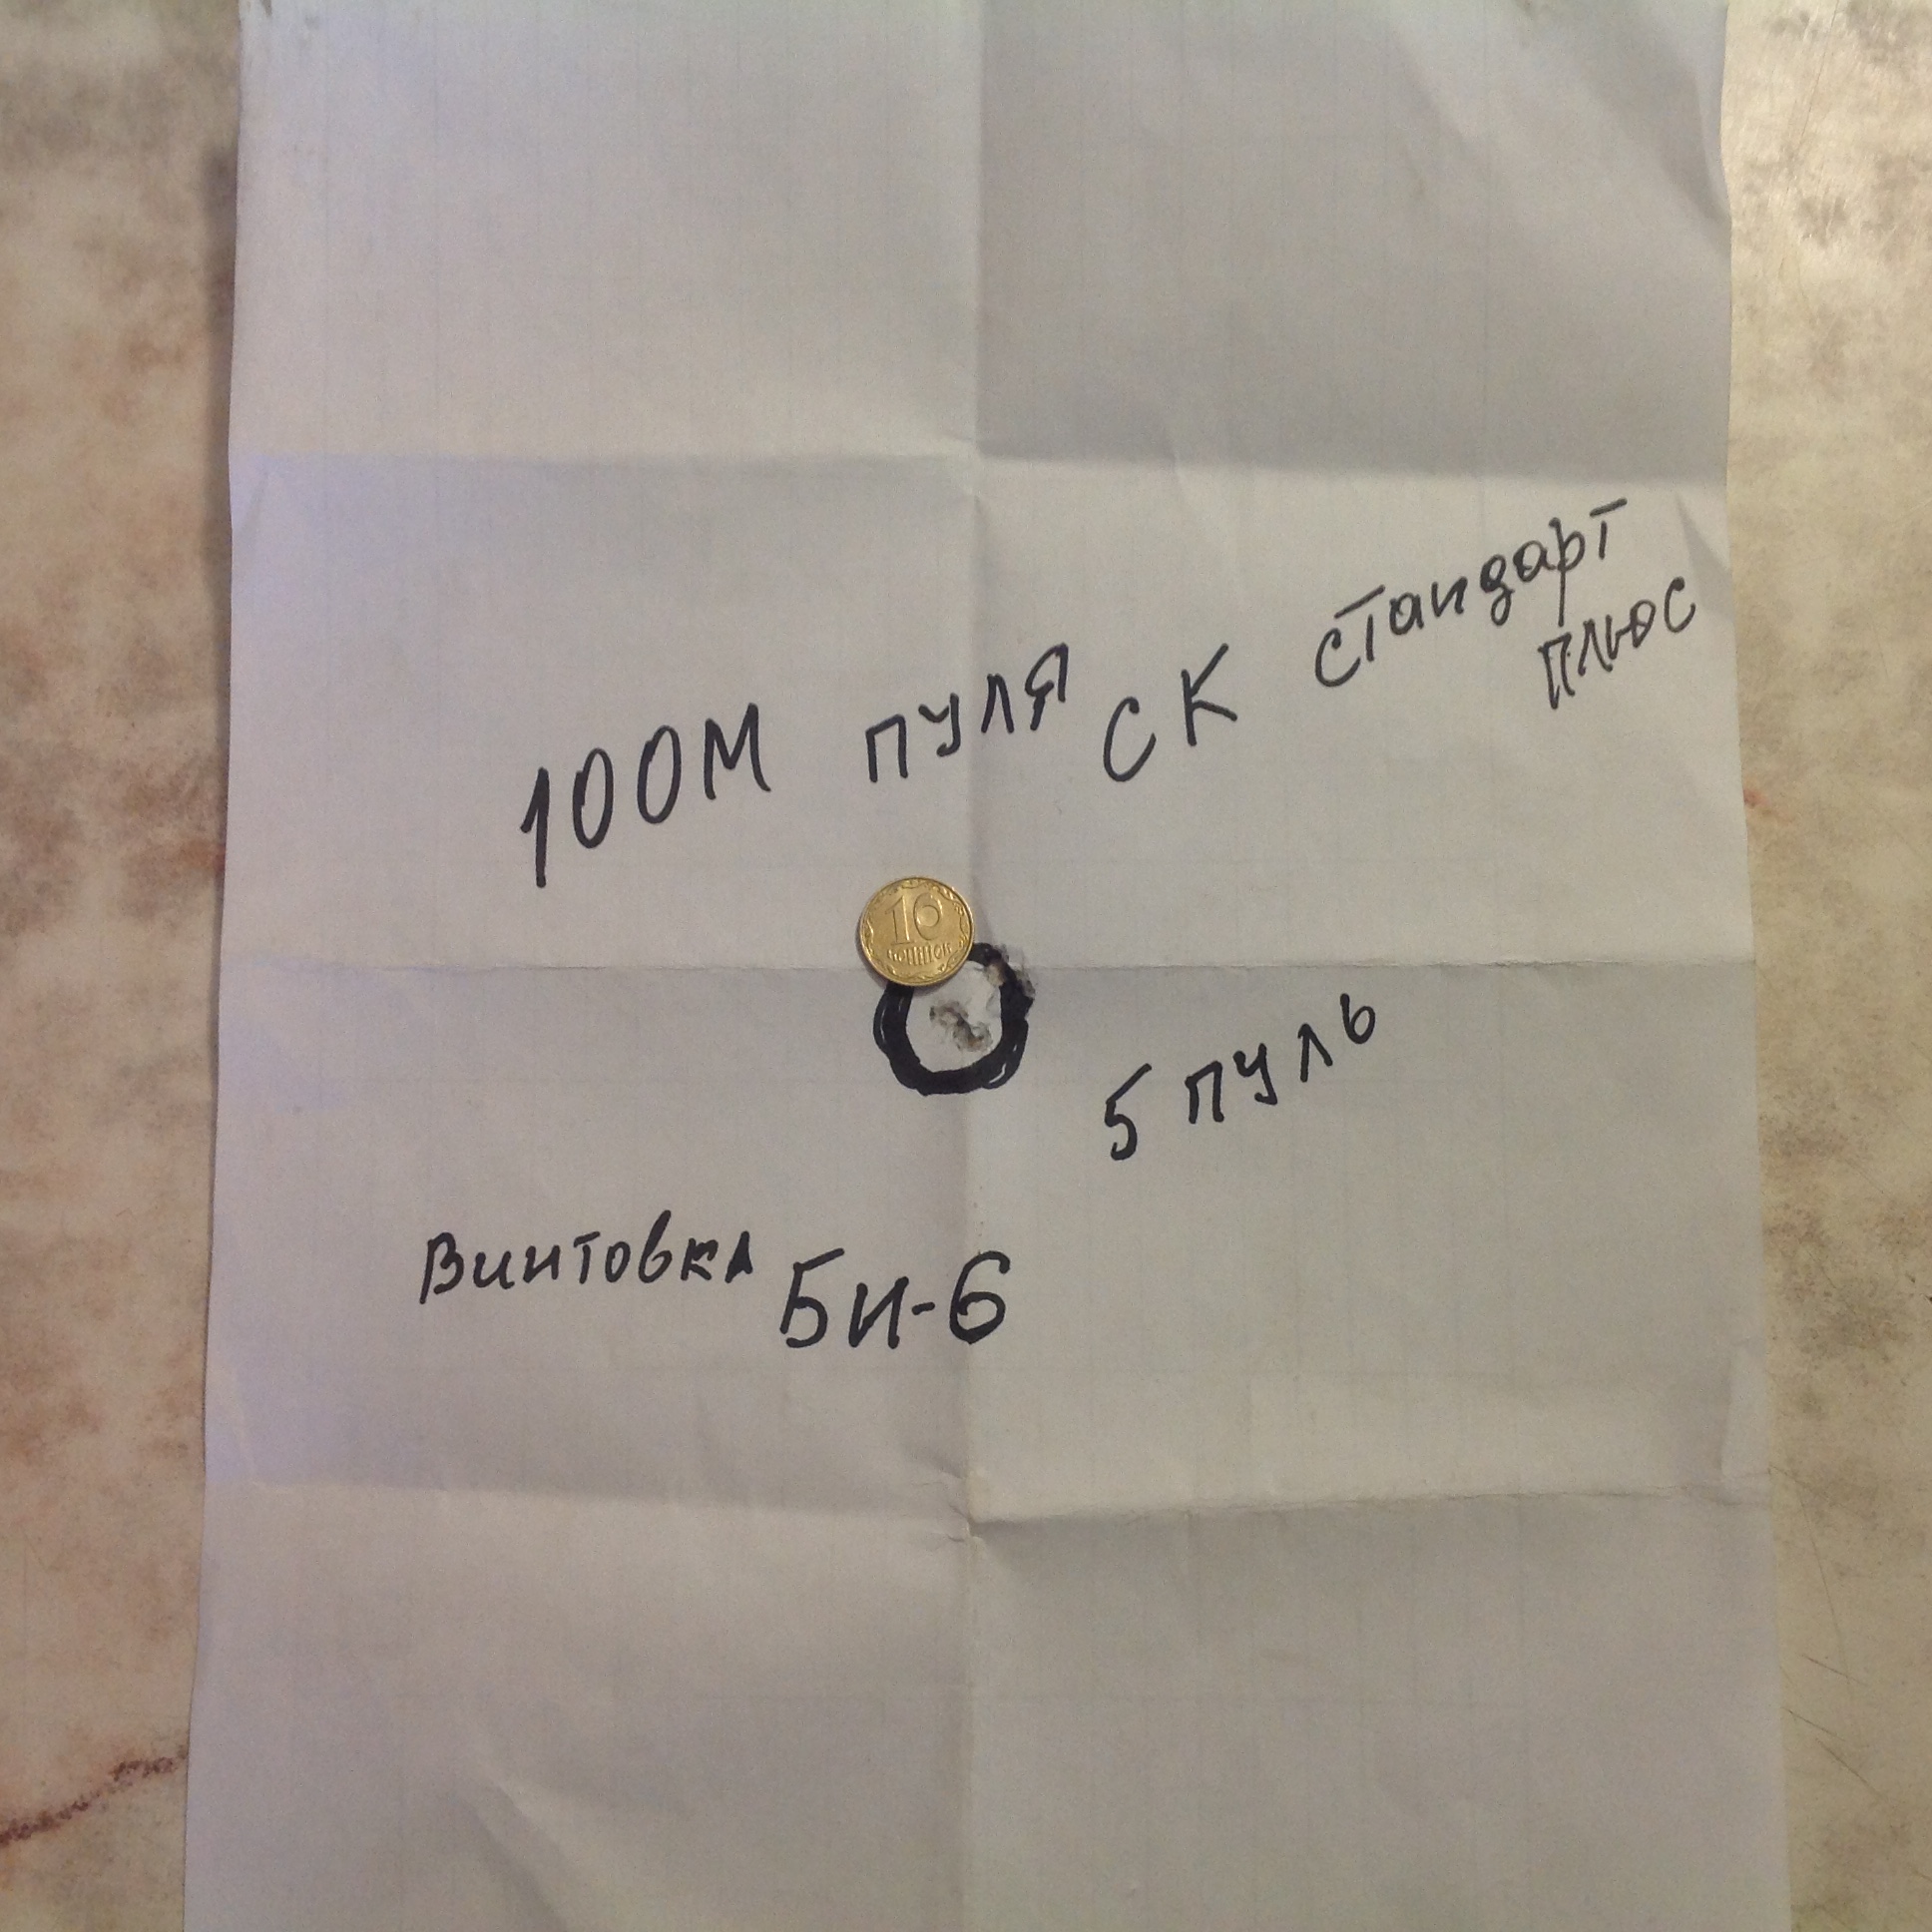 100м пуля СК стандарт
плюс
10
копійок
5 пуль
Винтовка Би-6